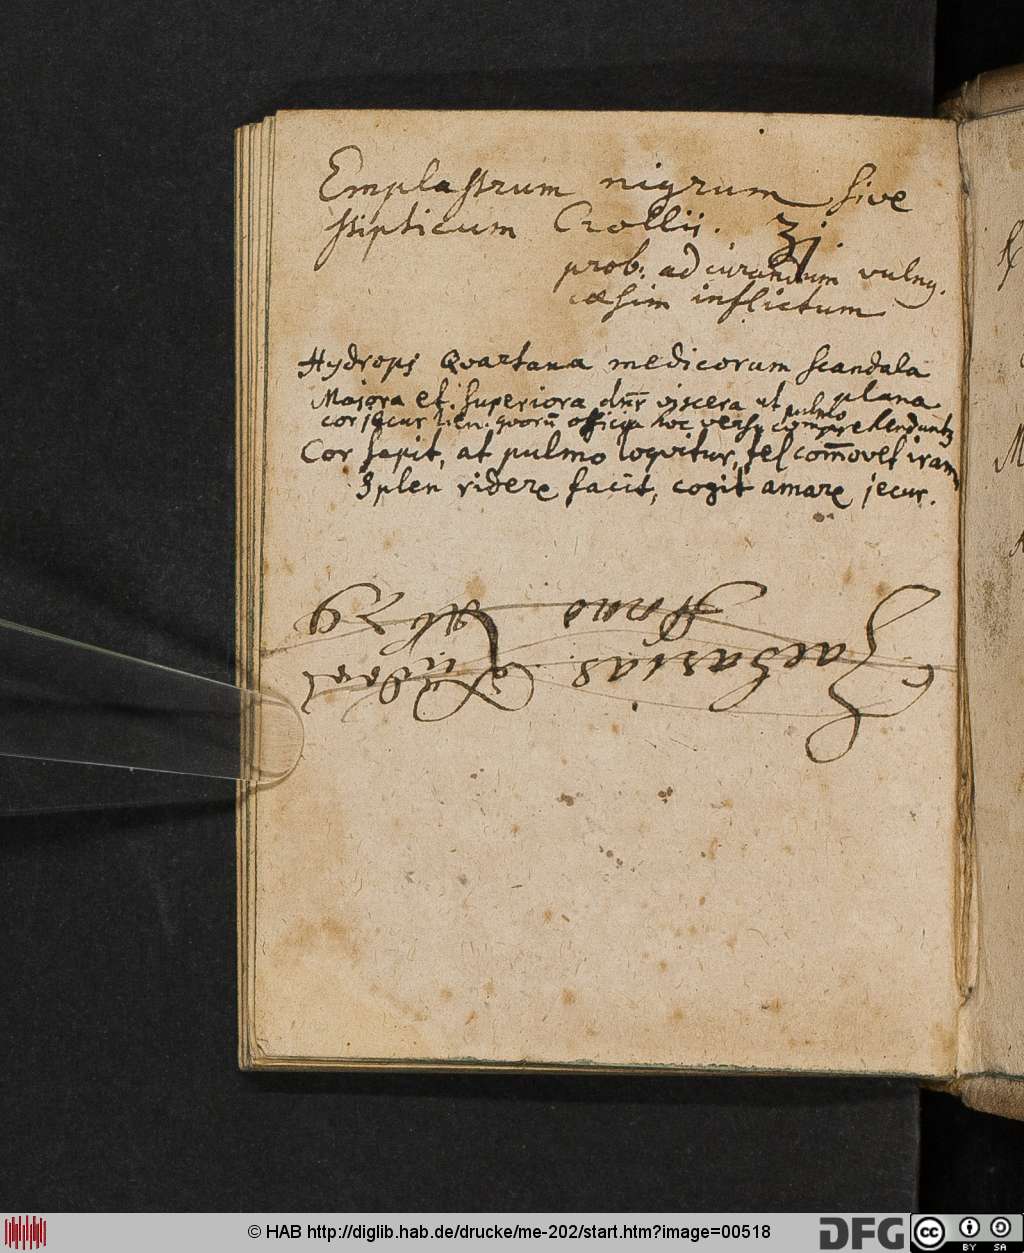 Emplastrum nigrum sive
stipticum Crollii. ʒj.
prob. ad curandum vulng.
cæsim inflictum
Hydrops Quartana medicorum scandala plana
Majora et superiora dnr viscera ut pulmo
cor jecur lien. quorū officia hoc versu comprehenduntz
Cor sapit, at pulmo loquitur, fel com̄ovet iram
Splen ridere facit, cogit amare jecur.
Zacharias
Anno
© HAB http://diglib.hab.de/drucke/me-202/start.htm?image=00518
DFG
cc
BY SA